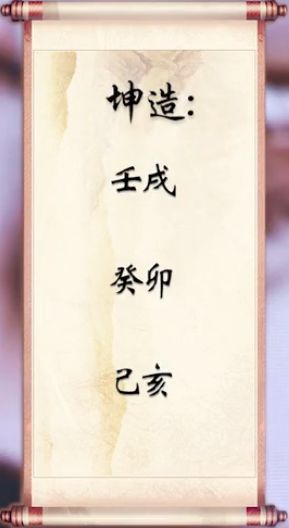 坤造:
壬戌
癸卯
己亥